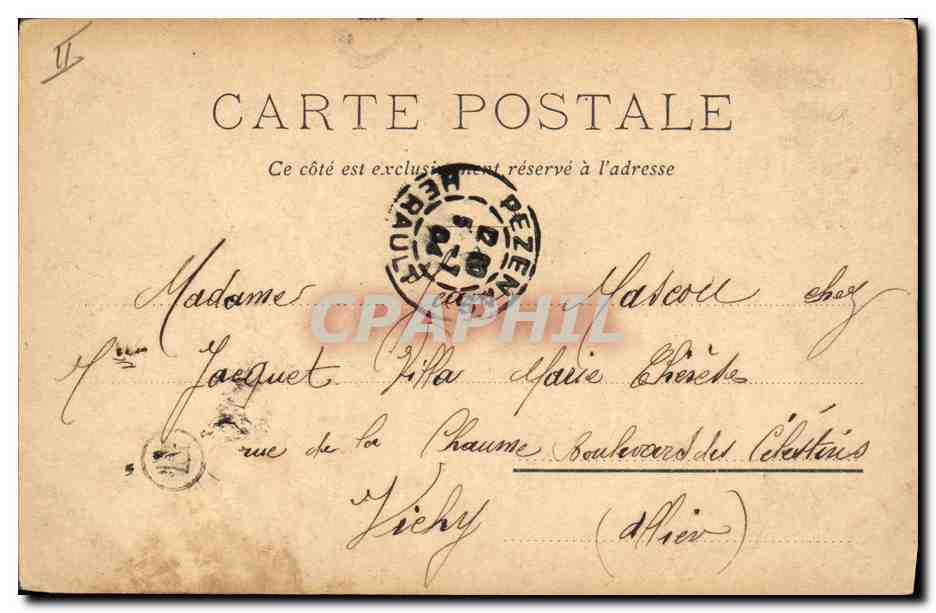 II
CARTE POSTALE
Ce côté est exclusivement réservé à l'adresse
PEZENAS
HERAULT
Madame Mascou chez
CPAPHIL
Mme Jacquet Villa Marie Thérèse
rue de la Chaume Boulevard des Célestins
Vichy (Allier)